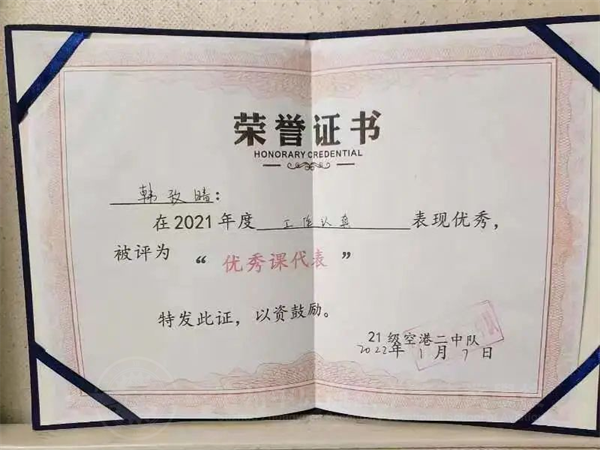 荣誉证书
HONORARY CREDENTIAL
韩孜晴：
在2021年度 工作认真 表现优秀，
被评为 “优秀课代表”
特发此证，以资鼓励。
21级空港二中队
2022年1月7日